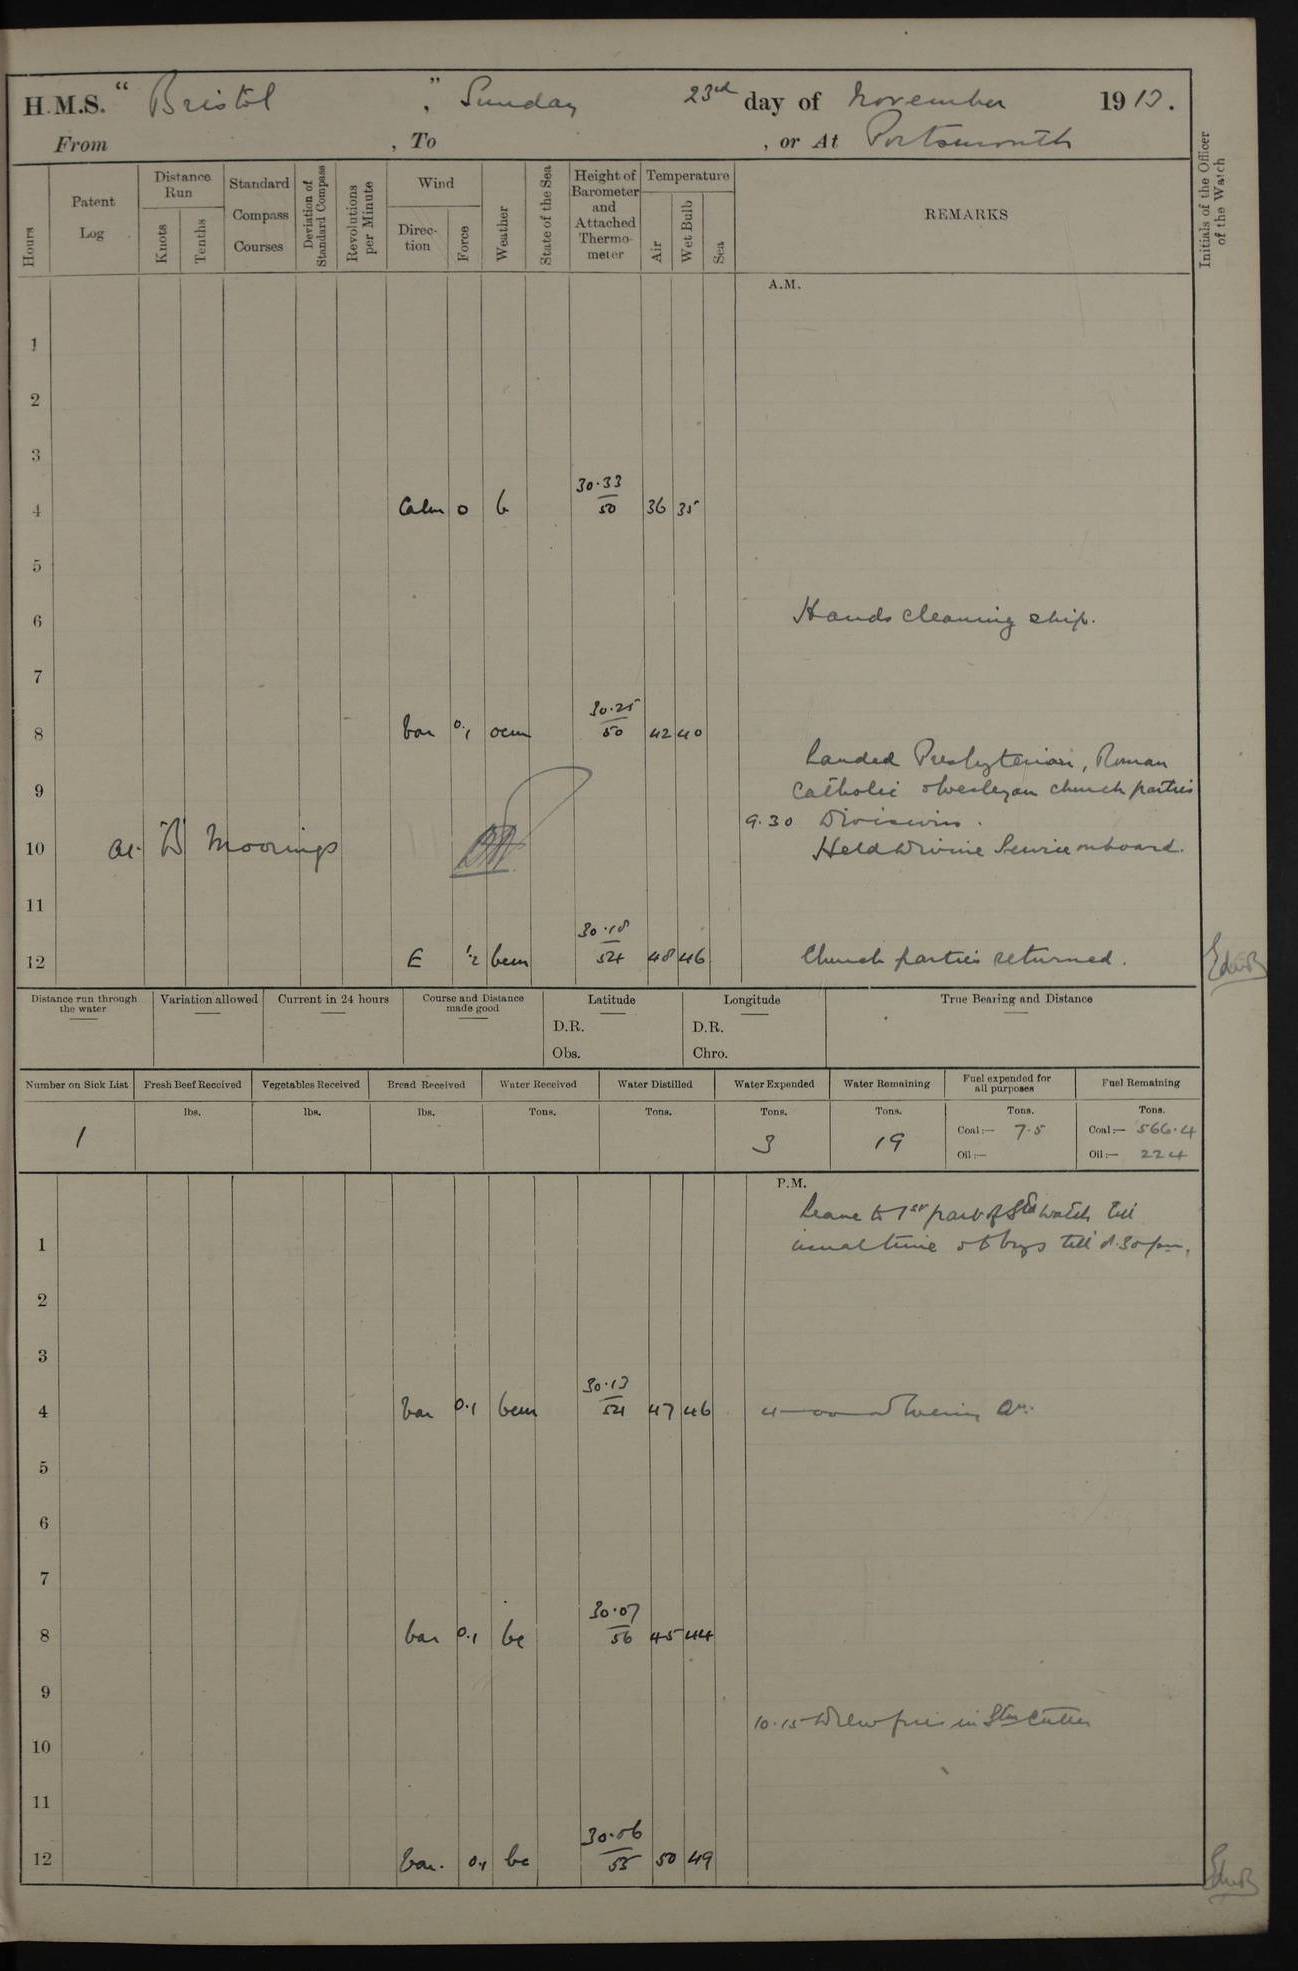 H.M.S. “ Bristol ” , Sunday 23rd day of November 1913.
From , To , or At Portsmouth
Hours
Patent Log
Distance Run
Knots
Tenths
Standard Compass Courses
Deviation of Standard Compass
Revolutions per Minute
Wind
Direction
Force
Weather
State of the Sea
Height of Barometer and Attached Thermometer
Temperature
Air
Wet Bulb
Sea
REMARKS
Initials of the Officer of the Watch
A.M.
1
2
3
30.33
4 Calm 0 b 50 36 35
5
6 Hands cleaning ship.
7
30.25
8 Var 0.1 ocm 50 42 40
Landed Presbyterian, Roman
9 Catholic & Wesleyan church parties
9.30 Divisions.
10 At B Moorings Held Divine Service onboard.
11
30.18
12 E 1/2 bcm 54 48 46 Church parties returned.
Distance run through the water
Variation allowed
Current in 24 hours
Course and Distance made good
Latitude
D.R.
Obs.
Longitude
D.R.
Chro.
True Bearing and Distance
Number on Sick List Fresh Beef Received Vegetables Received Bread Received Water Received Water Distilled Water Expended Water Remaining Fuel expended for all purposes Fuel Remaining
lbs. lbs. lbs. Tons. Tons. Tons. Tons. Tons. Tons.
1 3 19 Coal:— 7.5 Coal:— 566.4
Oil:— Oil:— 224
P.M.
Leave to 1st part of Std watch till
1 usual time & boys till 8.30 pm.
2
3
30.13
4 Var 0.1 bcm 54 47 46 Evening Qrs.
5
6
7
30.07
8 Var 0.1 bc 56 45 44
9
10.15 Drew fires in Stm Cutter
10
11
30.06
12 Var. 0.1 bc 55 50 49